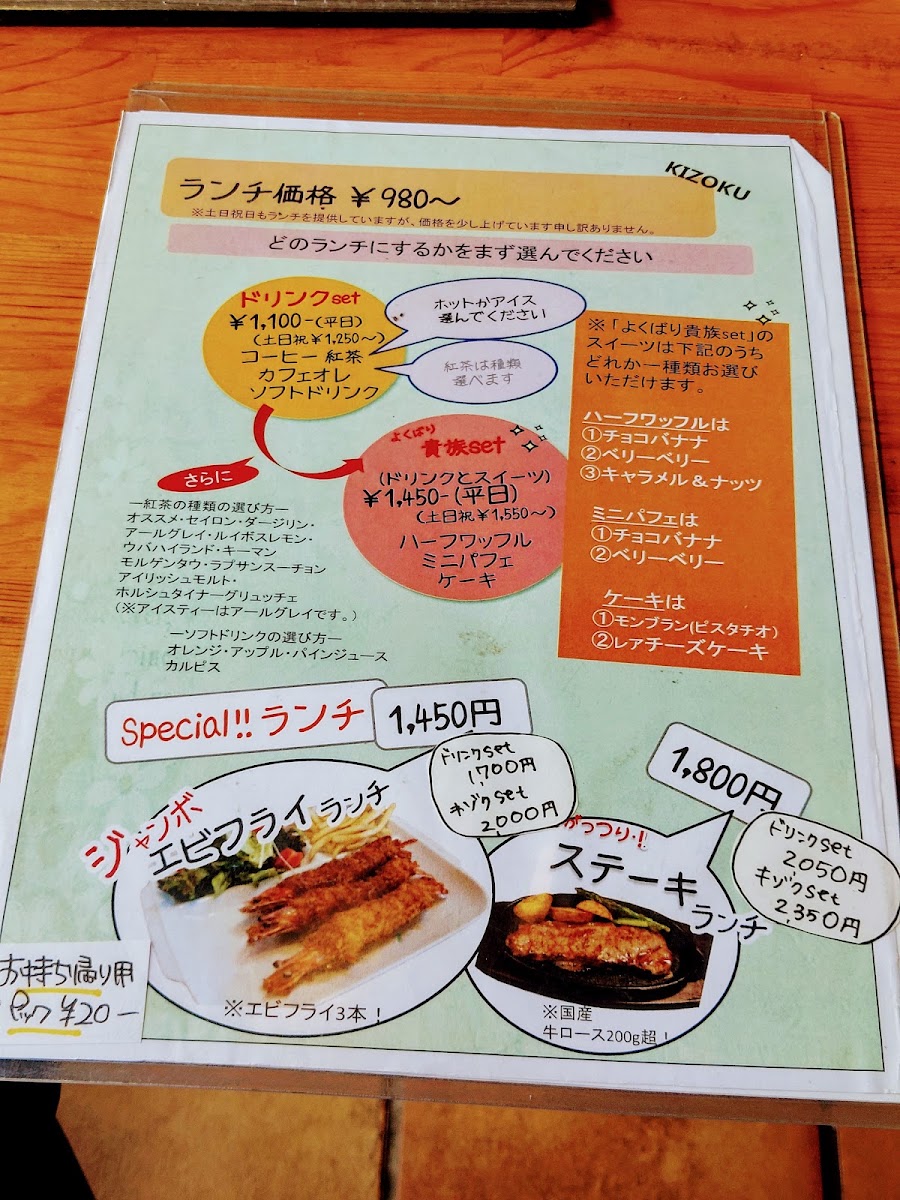 KIZOKU
ランチ価格 ¥980〜
※土日祝日もランチを提供していますが、価格を少し上げています申し訳ありません。
どのランチにするかをまず選んでください
ドリンクset
¥1,100-(平日)
(土日祝¥1,250〜)
コーヒー 紅茶
カフェオレ
ソフトドリンク
ホットかアイス
選んでください
紅茶は種類
選べます
よくばり
貴族set
(ドリンクとスイーツ)
¥1,450-(平日)
(土日祝¥1,550〜)
ハーフワッフル
ミニパフェ
ケーキ
※「よくばり貴族set」の
スイーツは下記のうち
どれか一種類お選び
いただけます。
ハーフワッフルは
①チョコバナナ
②ベリーベリー
③キャラメル&ナッツ
ミニパフェは
①チョコバナナ
②ベリーベリー
ケーキは
①モンブラン(ピスタチオ)
②レアチーズケーキ
さらに
―紅茶の種類の選び方―
オススメ・セイロン・ダージリン・
アールグレイ・ルイボスレモン・
ウバハイランド・キーマン
モルゲンタウ・ラプサンスーチョン
アイリッシュモルト・
ホルシュタイナーグリュッチェ
(※アイスティーはアールグレイです。)
―ソフトドリンクの選び方―
オレンジ・アップル・パインジュース
カルピス
Special!! ランチ
1,450円
ドリンクset
1,700円
キゾクset
2,000円
ジャンボ
エビフライランチ
※エビフライ3本！
1,800円
ドリンクset
2,050円
キゾクset
2,350円
がっつり・！
ステーキ
ランチ
※国産
牛ロース200g超！
お持ち帰り用
パック ¥20-